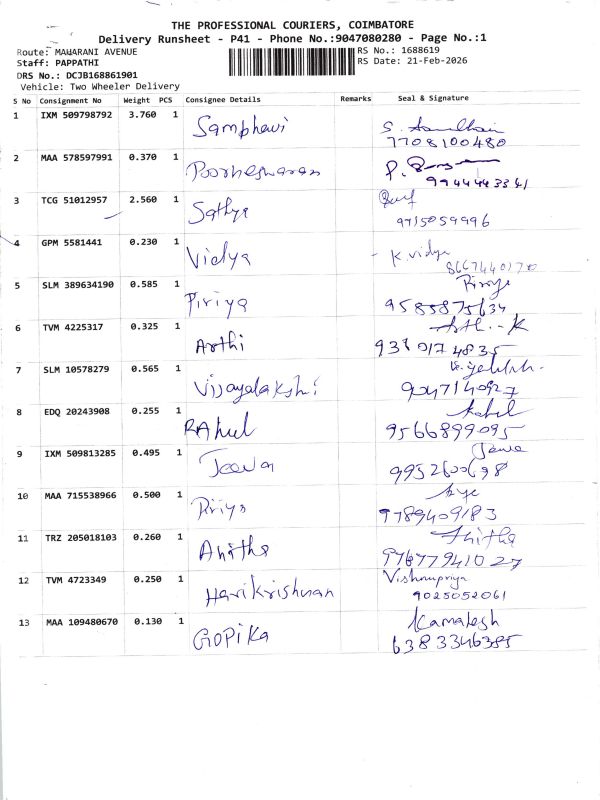 THE PROFESSIONAL COURIERS, COIMBATORE
Delivery Runsheet - P41 - Phone No.:9047080280 - Page No.:1
Route: MAHARANI AVENUE
RS No.: 1688619
Staff: PAPPATHI
RS Date: 21-Feb-2026
DRS No.: DCJB168861901
Vehicle: Two Wheeler Delivery
S No Consignment No Weight PCS Consignee Details Remarks Seal & Signature
1 IXM 509798792 3.760 1 Samphavi
7708100480
2 MAA 578597991 0.370 1 Poorneswaran
9944443341
3 TCG 51012957 2.560 1 Sathya
9715059996
4 GPM 5581441 0.230 1 Vidya K. vidya
8667440170
5 SLM 389634190 0.585 1 Piriya
9585875634
6 TVM 4225317 0.325 1 Arthi
7 SLM 10578279 0.565 1 Vijayalakshi
9047140927
8 EDQ 20243908 0.255 1 RAhul
9566899095
9 IXM 509813285 0.495 1 Jeeva
9952600698
10 MAA 715538966 0.500 1 Priya
9789409183
11 TRZ 205018103 0.260 1 Anitha Anitha
12 TVM 4723349 0.250 1 Harikrishnan Vishnupriya
9025052061
13 MAA 109480670 0.130 1 GOPiKa Kamalesh
6383346385